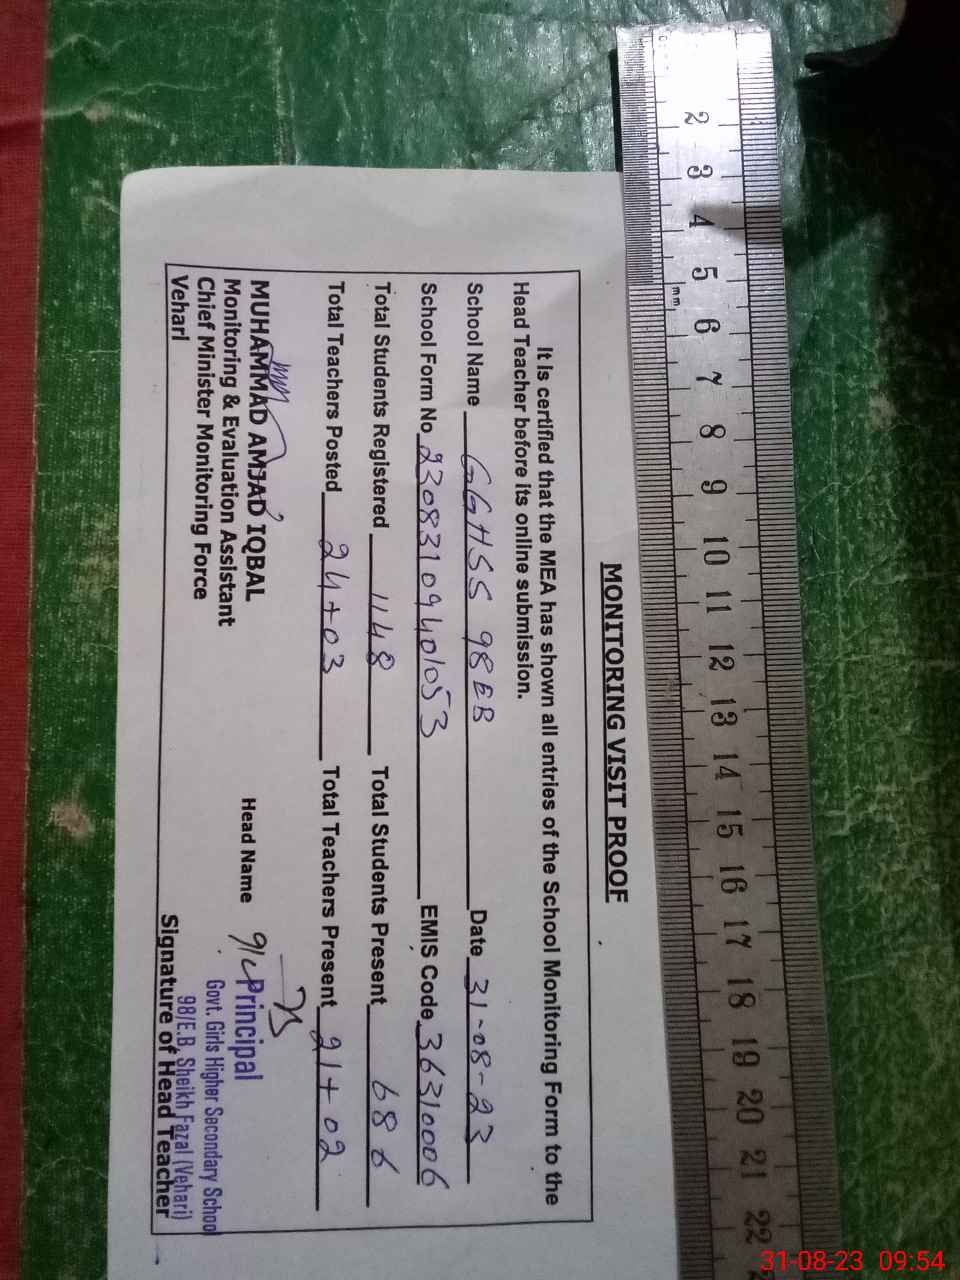 MONITORING VISIT PROOF
It is certified that the MEA has shown all entries of the School Monitoring Form to the
Head Teacher before its online submission.
School Name GGHSS 98EB Date 31-08-23
School Form No 23083109401053 EMIS Code 36310006
Total Students Registered 1148 Total Students Present 686
Total Teachers Posted 24+03 Total Teachers Present 21+02
MUHAMMAD AMJAD IQBAL
Monitoring & Evaluation Assistant
Chief Minister Monitoring Force
Vehari
Head Name
Principal
Govt. Girls Higher Secondary School
98/E.B, Sheikh Fazal (Vehari)
Signature of Head Teacher
2 3 4 5 6 7 8 9 10 11 12 13 14 15 16 17 18 19 20 21 22
mm
31-08-23 09:54